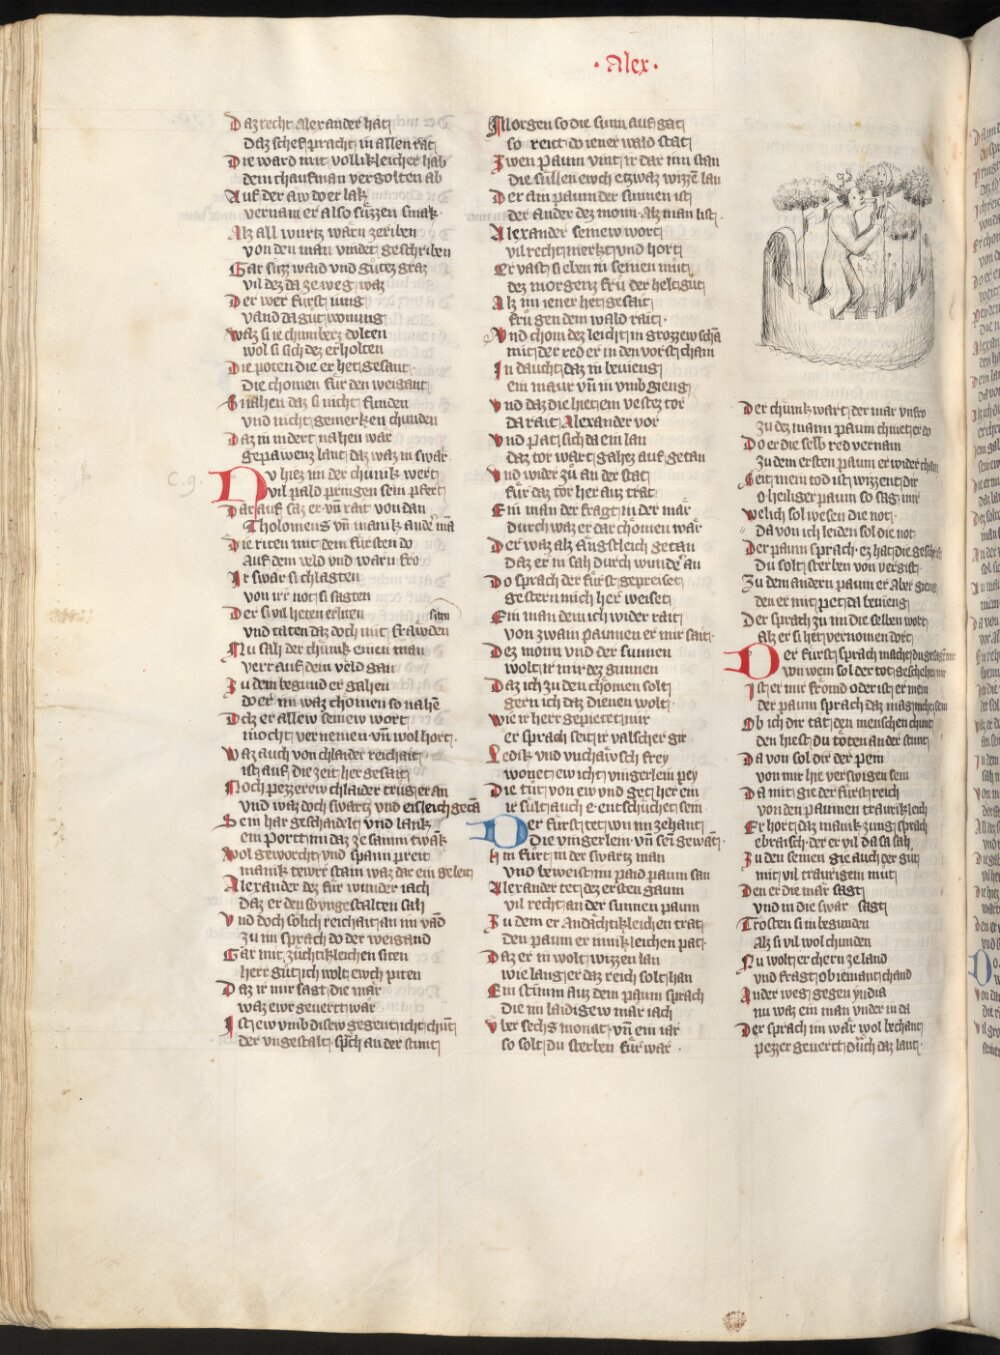 · Alex ·
Daz recht Alexander hat
daz schef pracht in allen rat
Die ward mit vollikleicher hab
dem chaufman vergolten ab
Auf der aw do er lak
vernam er also süzzen smak
Alz all wurtz wärn zeriben
von den man vindet geschriben
Gar süzz waid vnd gůtez graz
vil dez da ze weg waz
Der wer fürst iung
vand da gůt wonung
Waz si ie chumberz dolten
wol si sich dez erholten
Die poten die er het gesant
die chomen für den weigant
Si iahen daz si nicht funden
vnd nicht gemerken chunden
Daz in indert nahen wär
gepawenz lant daz waz in swär
C. 9.
Nv hiez im der chünik wert
vil pald pringen sein pfert
Darauf saz er vñ rait von dan
Tholomeus vñ manik ander mã
Die riten mit dem fürsten do
auf dem veld vnd warn fro
Ir swär si chlagten
von irr not si sagten
Der si vil heten erliten
vnd taten daz doch mit frawden siten
Nu sah der chünik einen man
vert auf dem veld gan
Zu dem begund er gahen
do er im waz chomen so nahẽ
Daz er allew seinew wort
mocht vernemen vñ wol hort
Waz auch von chlaider reichait
ist auf die zeit her gesait
Noch pezzerew chlaider trůg er an
vnd waz doch swartz vnd eisleich getã
Sein har geschaidelt vnd lank
ein porttn im daz ze samm twãk
Wol geworcht vnd spann preit
manik tewrr stain waz dar ein geleit
Alexander dez für wunder iach
daz er den so vngestalten sah
Vnd doch solich reichait an im vãd
zu im sprach do der weigand
Gar mit züchtikleichen siten
herr gůt ich wolt ewch piten
Daz ir mir sagt die mär
waz ewr geuertt wär
Ist ew vmb disew gegent icht chũt
der vngestalt sp̃ch an der stunt
Morgen so die sunn auf gat
so reit do iener wald stat
Zwen paum vint ir dar inn stan
die süllen ewch etzwaz wizzẽ lan
Der ain paum der sunnen ist
der ander dez monn alz man list
Alexander seinew wort
vil recht merkt vnd hort
Er vast si eben in seinen můt
dez morgenz frů der helt gůt
Alz im iener het gesait
frů gen dem wald rait
Vnd chom dez leicht in grozzew schã
mit der red er in den vorst cham
In daucht daz in beuieng
ein maur vñ in vmb gieng
Vnd daz die hiet ein vestez tor
da rait Alexander vor
Vnd pat sich da ein lan
daz tor wart gahez auf getan
Vnd wider zů an der stat
für daz tor her auz trat
Ein man der fragt in der mär
durch waz er dar chömen wär
Der waz alz angstleich getan
daz er in sah durch wunder an
Do sprach der fürst gepreiset
gestern mich her weiset
Ein man dem ich wider rait
von zwain paumen er mir sait
Dez monn vnd der sunnen
wolt ir mir dez gunnen
Daz ich zu den chömen solt
gern ich daz dienen wolt
Wie ir herr gepietet mir
er sprach seit ir valscher gir
Ledik vnd vnchäwsch frey
wonet ew icht vingerlein pey
Die tůt von ew vnd get her ein
ir sült auch e entschůchet sein
Der fürst tet von im zehant
die vingerlein vñ sei gewãt
Hin fůrt in der swartz man
vnd beweist im paid paum san
Alexander tet dez ersten gaum
vil recht an der sunnen paum
Zu dem er andachtikleichen trat
den paum er innikleichen pat
Daz er in wolt wizzen lan
wie lang er daz reich solt han
Ein stimm auz dem paum sprach
die im laidigew mär iach
Vber sechs monat vñ ein iar
so solt du sterben für war
Der chünk wart der mär vnfro
zu dez mann paum chniet er do
Do er die selb red vernam
zu dem ersten paum er wider cham
Seit mein tod ist wizzent dir
o heiliger paum so sag mir
Welich sol wesen die not
da von ich leiden sol die not
Der paum sprach ez hat die geschriFt
du solt sterben von vergift
Zu dem andern paum er aber gieng
den er mit pet da beuieng
Der sprach zu im die selben wort
alz er si het vernomen dort
Der fürst sprach macht du gesagẽ mir
von wem sol der tot geschehen mir
Ist er mir frömd oder ist er mein
der paum sprach daz mag nicht sein
Ob ich dir tät den menschen chunt
den hiest du töten an der stunt
Da von sol dir der pein
von mir hie verswigen sein
Da mit gie der fürst reich
von den paumen traurikleich
Er hort daz manik zung sprach
ebraisch der er vil da sah
Zu den seinen gie auch der gůt
mit vil träurigem můt
Den er die mär sagt
vnd in die swär sagt
Trosten si in begunden
alz si vil wol chunden
Nu wolt er chern ze land
vnd fragt ob iemant chand
Ander weg gegen yndia
nu waz ein man vnder in da
Der sprach im wär wol bechant
pezzer geuertt durch daz lant